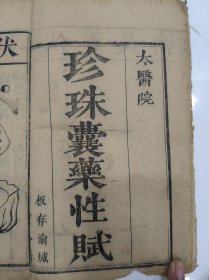 太醫院
珍珠囊藥性賦
板存前城